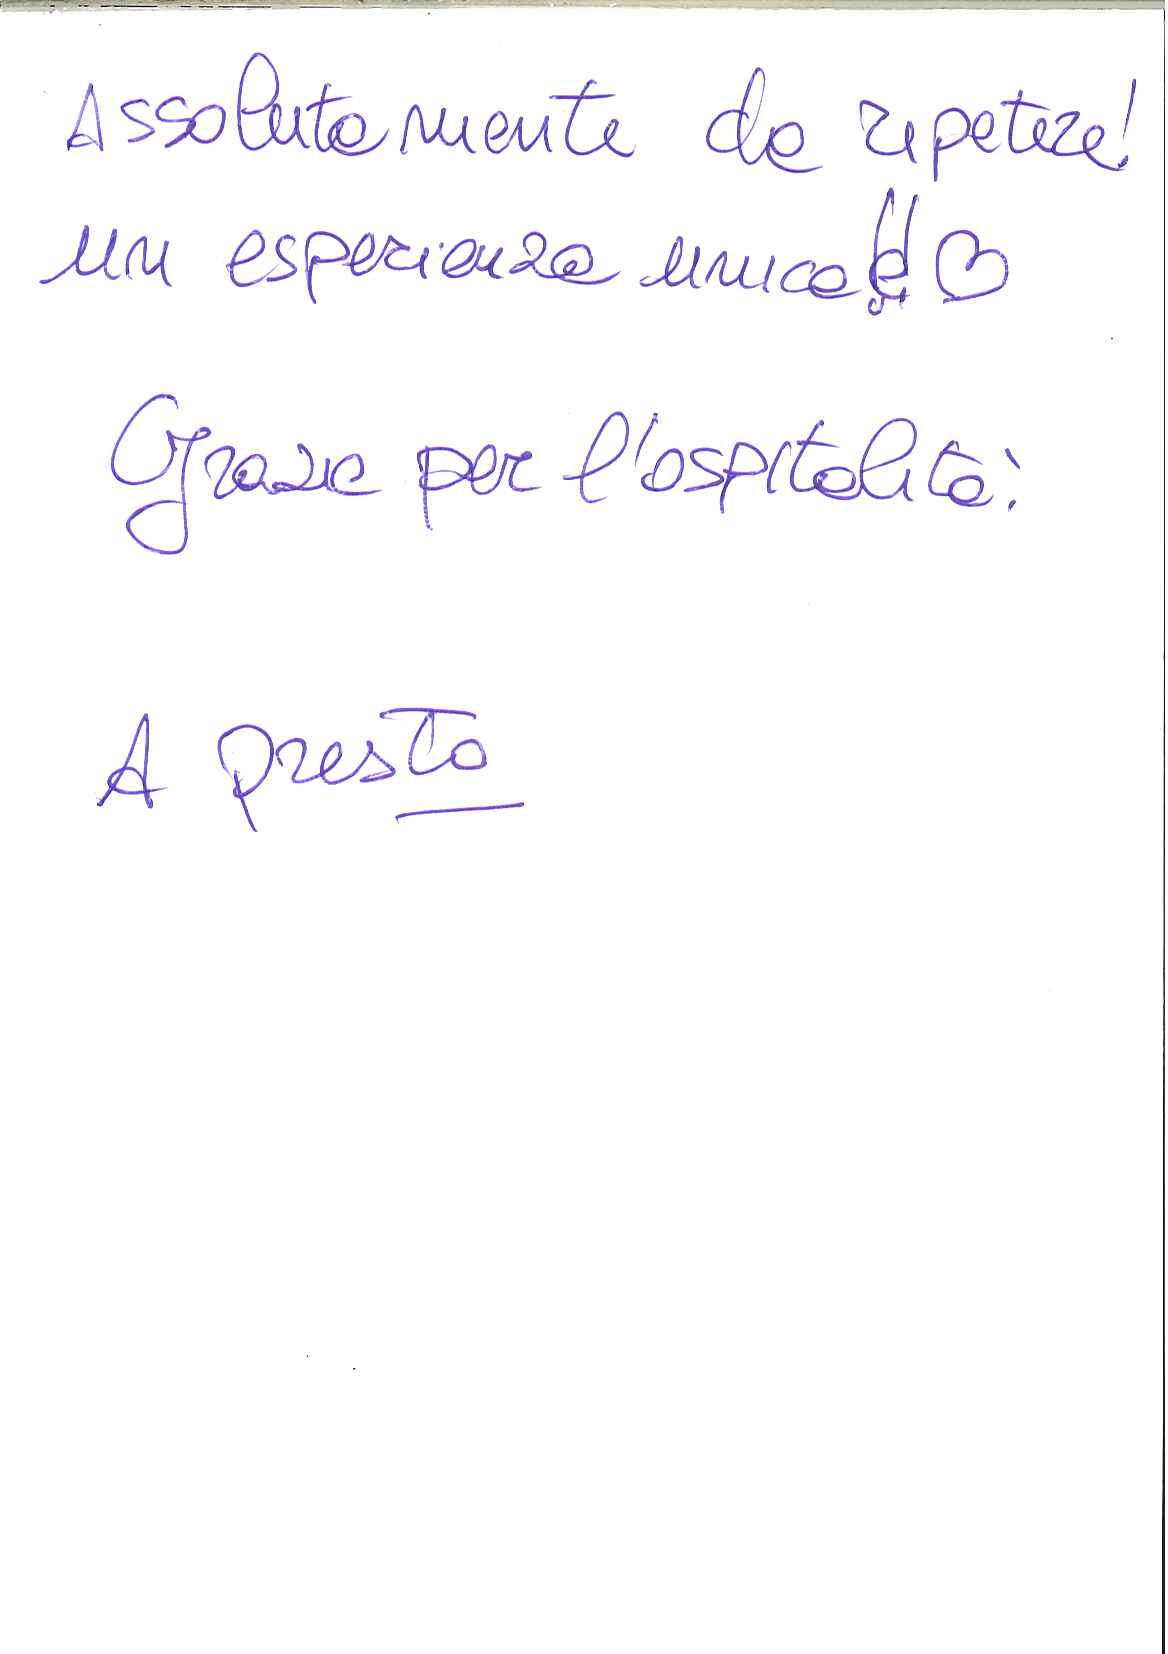 Assolutamente da ripetere!
un esperienza unica!! ♡
Grazie per l'ospitalità!
A presto